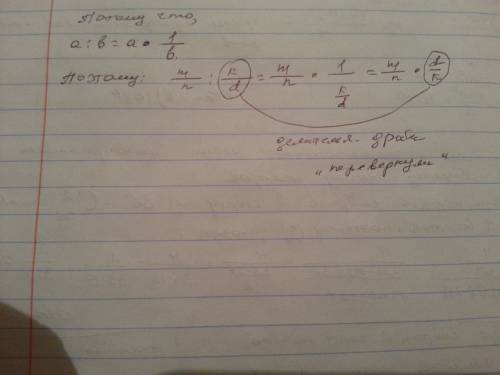 Потому что,
a : b = a • 1/b.
Поэтому: m/n : k/d = m/n • 1/(k/d) = m/n • d/k
дроби
"перевернули"